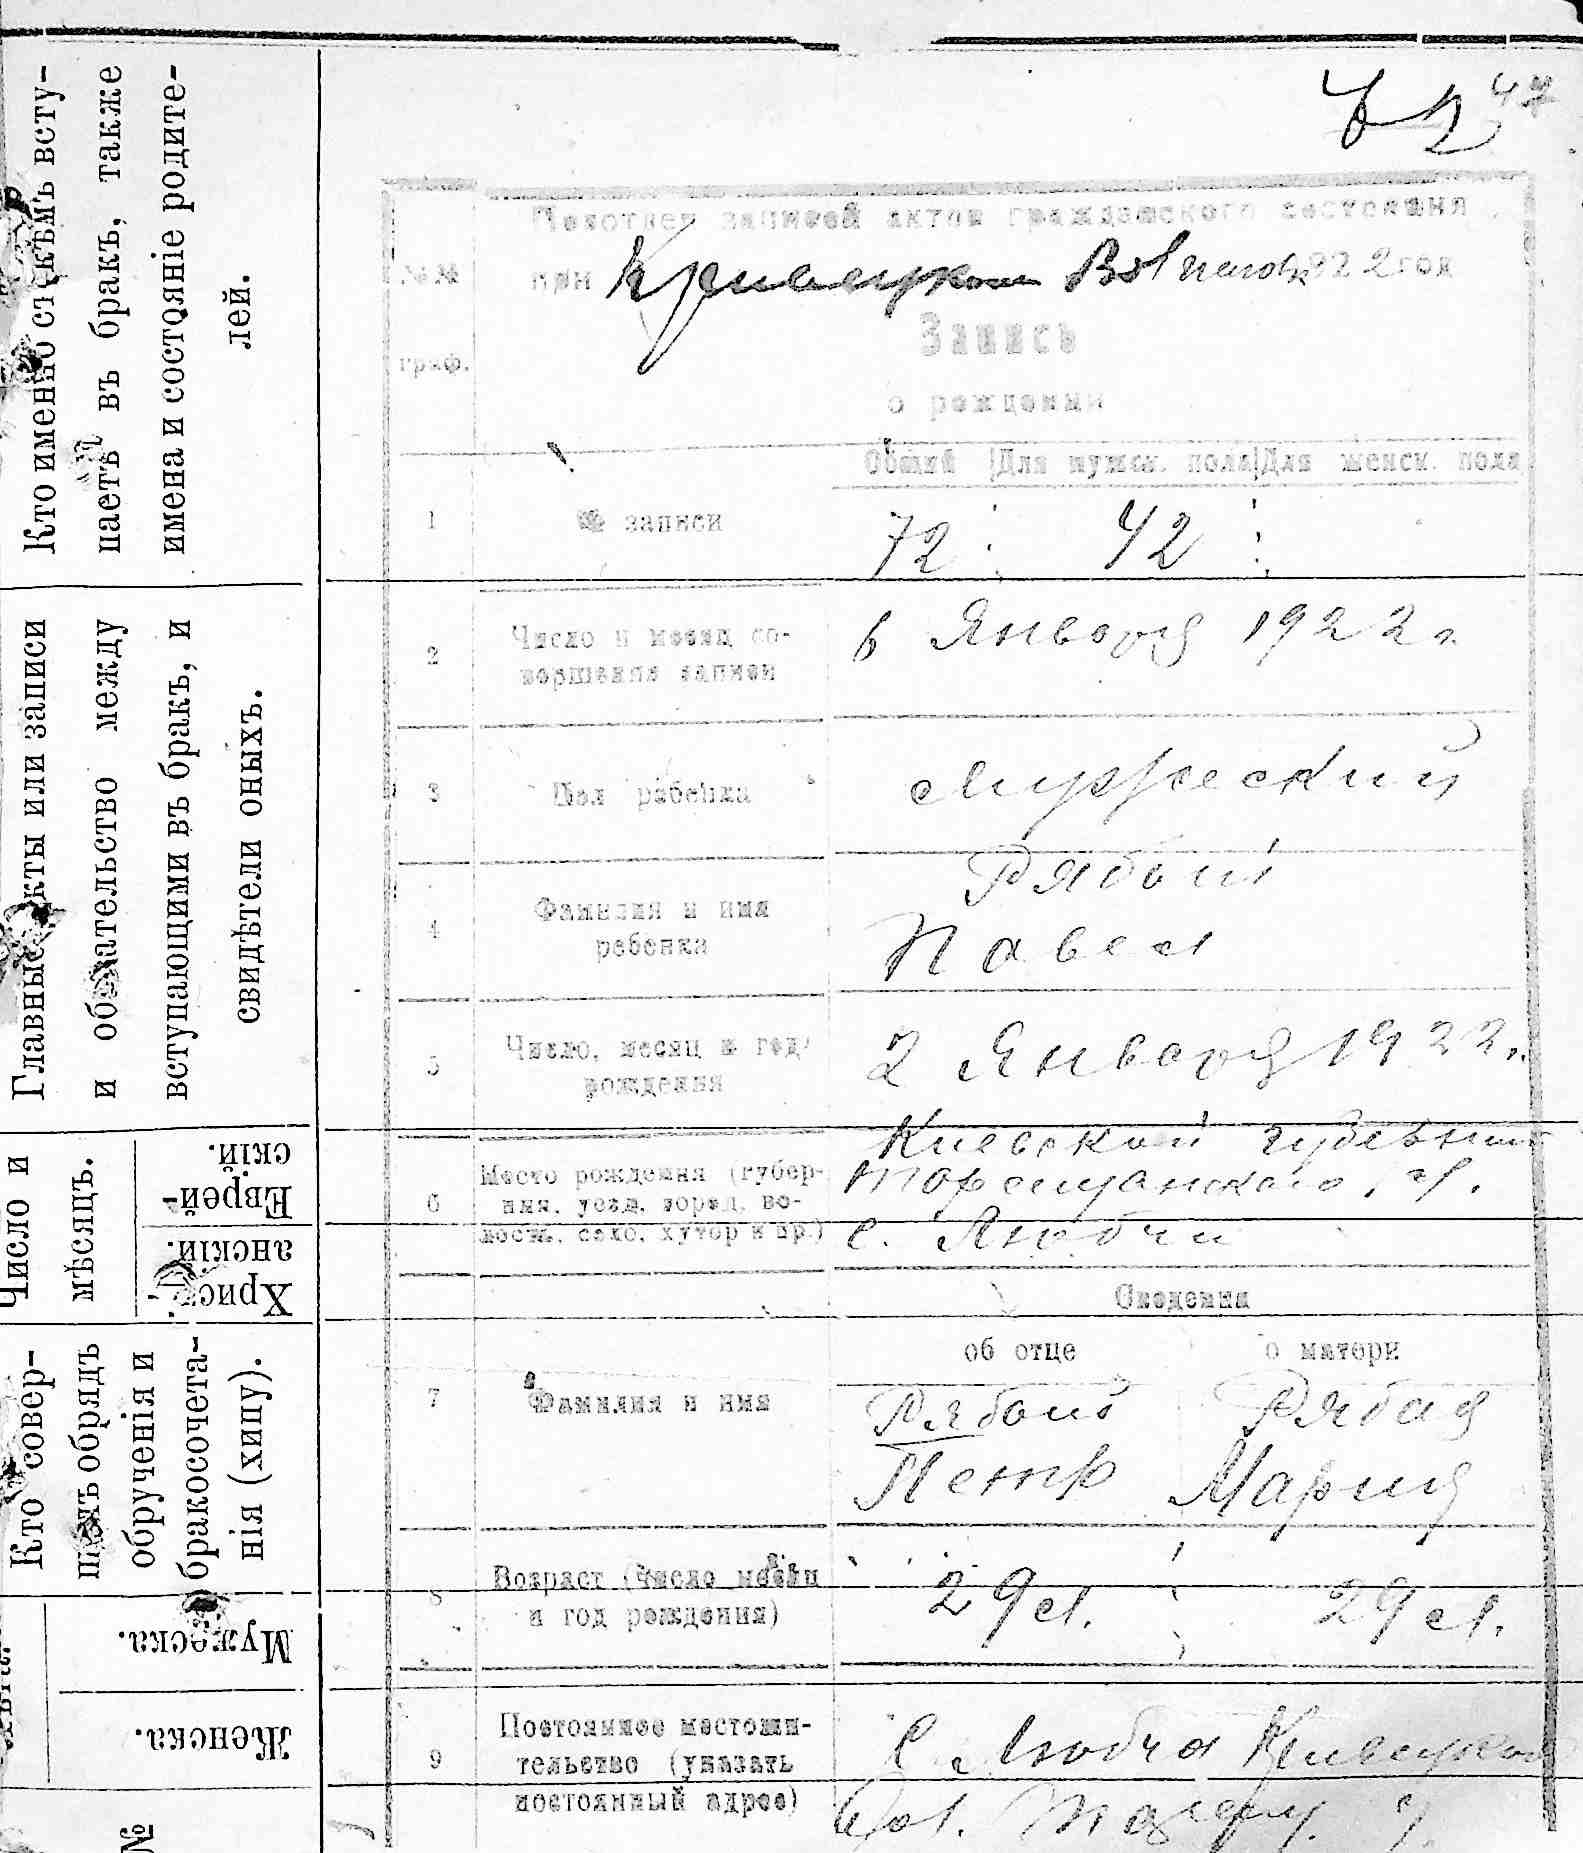 Кто именно съ кѣмъ всту-
паетъ въ бракъ, также
имена и состояніе родите-
лей.
Главные акты или записи
и обязательство между
вступающими въ бракъ, и
свидѣтели оныхъ.
Число и
мѣсяцъ.
Еврей-
скій.
Христ.
анскій.
Кто совер-
шалъ обрядъ
обрученія и
бракосочета-
нія (хипу).
Мужеска.
Женска.
№
72 47
записей актов гражданского состояния
при Кривецком Вол 1922 год
№№
граф.
Запись
о рождении
Общий Для мужск. пола Для женск. пола
1 № записи 72 42
2 Число и месяц со-
вершения записи
6 Января 1922 г.
3 Пол ребенка Мужеский
4 Фамилия и имя
ребенка
Рябой
Павел
5 Число, месяц и год
рождения
2 Января 1922 г.
6 Место рождения (губер-
ния, уезд, город, во-
лость, село, хутор и пр.)
Киевской губернии
Таращанского у.
с. Любчи
Сведения
об отце о матери
7 Фамилия и имя
Рябой Рябая
Петр Мария
8 Возраст (число месяц
и год рождения)
29 л. 29 л.
9 Постоянное местожи-
тельство (указать
постоянный адрес)
С. Любча Кривецкой
Вол. Таращ. у.